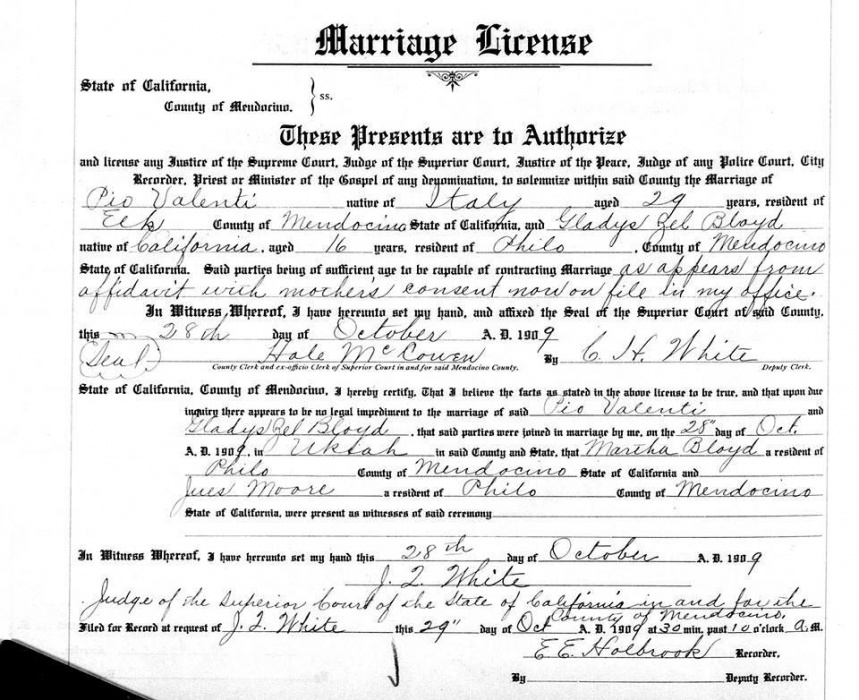 Marriage License
State of California,
County of Mendocino. } ss.
These Presents are to Authorize
and license any Justice of the Supreme Court, Judge of the Superior Court, Justice of the Peace, Judge of any Police Court, City
Recorder, Priest or Minister of the Gospel of any denomination, to solemnize within said County the Marriage of
Pio Valenti native of Italy aged 29 years, resident of
Elk County of Mendocino State of California, and Gladys Zel Bloyd
native of California, aged 16 years, resident of Philo, County of Mendocino
State of California. Said parties being of sufficient age to be capable of contracting Marriage as appears from
affidavit with mother's consent now on file in my office.
In Witness Whereof, I have hereunto set my hand, and affixed the Seal of the Superior Court of said County,
this 28th day of October A. D. 1909
(Seal) Hale McCowen By C. H. White
County Clerk and ex-officio Clerk of Superior Court in and for said Mendocino County. Deputy Clerk.
State of California, County of Mendocino, I hereby certify, That I believe the facts as stated in the above license to be true, and that upon due
inquiry there appears to be no legal impediment to the marriage of said Pio Valenti and
Gladys Zel Bloyd, that said parties were joined in marriage by me, on the 28" day of Oct.
A. D. 1909, in Ukiah in said County and State, that Martha Bloyd a resident of
Philo County of Mendocino State of California and
Moore a resident of Philo County of Mendocino
State of California, were present as witnesses of said ceremony
In Witness Whereof, I have hereunto set my hand this 28th day of October A. D. 1909
J. Q. White
Judge of the Superior Court of the State of California in and for the
County of Mendocino.
Filed for Record at request of J. Q. White this 29" day of Oct A. D. 1909 at 30 min. past 10 o'clock A. M.
E. E. Holbrook Recorder.
By Deputy Recorder.